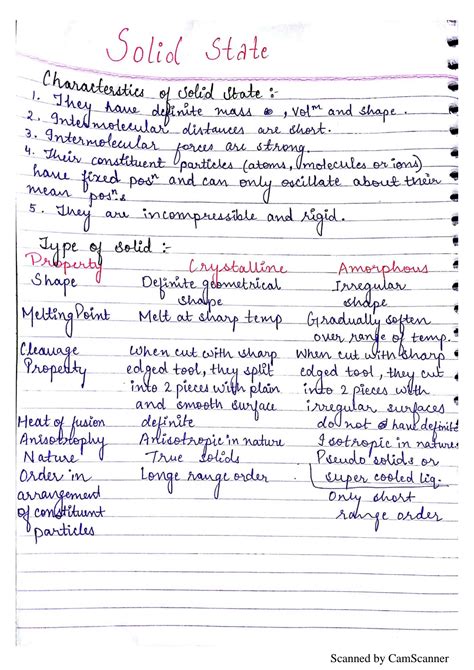 Solid State
Characterstics of Solid State :-
1. They have definite mass , Volᵐ and shape .
2. Intermolecular distances are short.
3. Intermolecular forces are strong.
4. Their constituent particles (atoms, molecules or ions)
have fixed posⁿ and can only oscillate about their
mean posⁿs.
5. They are incompressible and rigid.
Type of Solid :-
Property Crystalline Amorphous
Shape Definite geometrical Irregular
shape shape
Melting Point Melt at sharp temp Gradually soften
over range of temp.
Cleavage When cut with sharp When cut with sharp
Property edged tool, they split edged tool, they cut
into 2 pieces with plain into 2 pieces with
and smooth surface irregular surfaces
Heat of fusion definite do not have definite
Anisotrophy Anisotropic in nature Isotropic in nature
Nature True solids Pseudo solids or
super cooled liq.
Order in Longe range order Only short
arrangement range order
of constituent
particles
Scanned by CamScanner